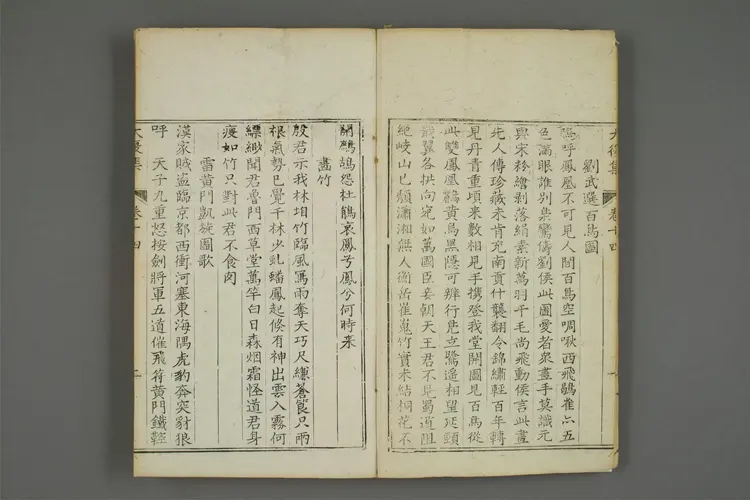 大復集
卷十四
劉武選百鳥圖
嗚呼鳳凰不可見人間百鳥空啁啾西飛鷁雀六五
色滿眼誰別梟鸞儔劉侯此圖愛者衆畫手莫識元
與宋粉繪剝落絹素新萬羽千毛尚飛動侯言此畫
先人傳珍藏未肯充南貢什襲翻令錦繡輕百年轉
見丹青重頃來數相見手攜登我堂開圖見百鳥從
此雙鳳凰鸛黃烏黑隱可辨行危立鷺遙相望延頸
翼各拱向宛如萬國臣妾朝天王君不見蜀道阻
絶岐山已頹瀟湘無人衡岳崔嵬竹實未結桐花不
開鷓鴣怨杜鵑哀鳳兮鳳兮何時来
畫竹
殷君示我林垍竹臨風寫雨奪天巧尺縑蒼筤只兩
根氣勢已覺千林少虬蟠鳳起倏有神出雲入霧何
縹緲聞君魯門西草堂萬竿白日森烟霜怪道君身
瘦如竹只對此君不食肉
雷黃門凱旋圖歌
漢家賊盗臨京都西衝河塞東海隅虎豹奔突豺狼
呼　天子九重怒按劍將軍五道催飛符黃門鐵騎
大復集
卷十四
二